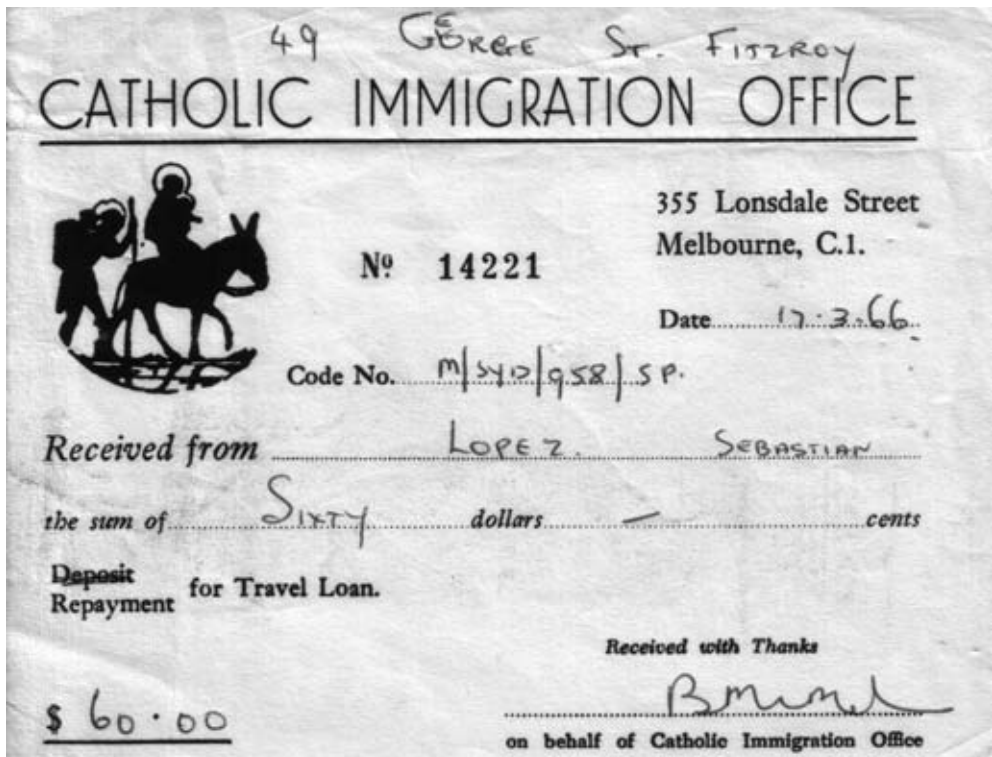 49 GEORGE ST. FITZROY
CATHOLIC IMMIGRATION OFFICE
355 Lonsdale Street
Melbourne, C.1.
Nº 14221
Date 17.3.66
Code No. M/SYD/958/SP.
Received from LOPEZ. SEBASTIAN
the sum of SIXTY dollars — cents
Deposit
Repayment for Travel Loan.
Received with Thanks
$ 60.00
on behalf of Catholic Immigration Office